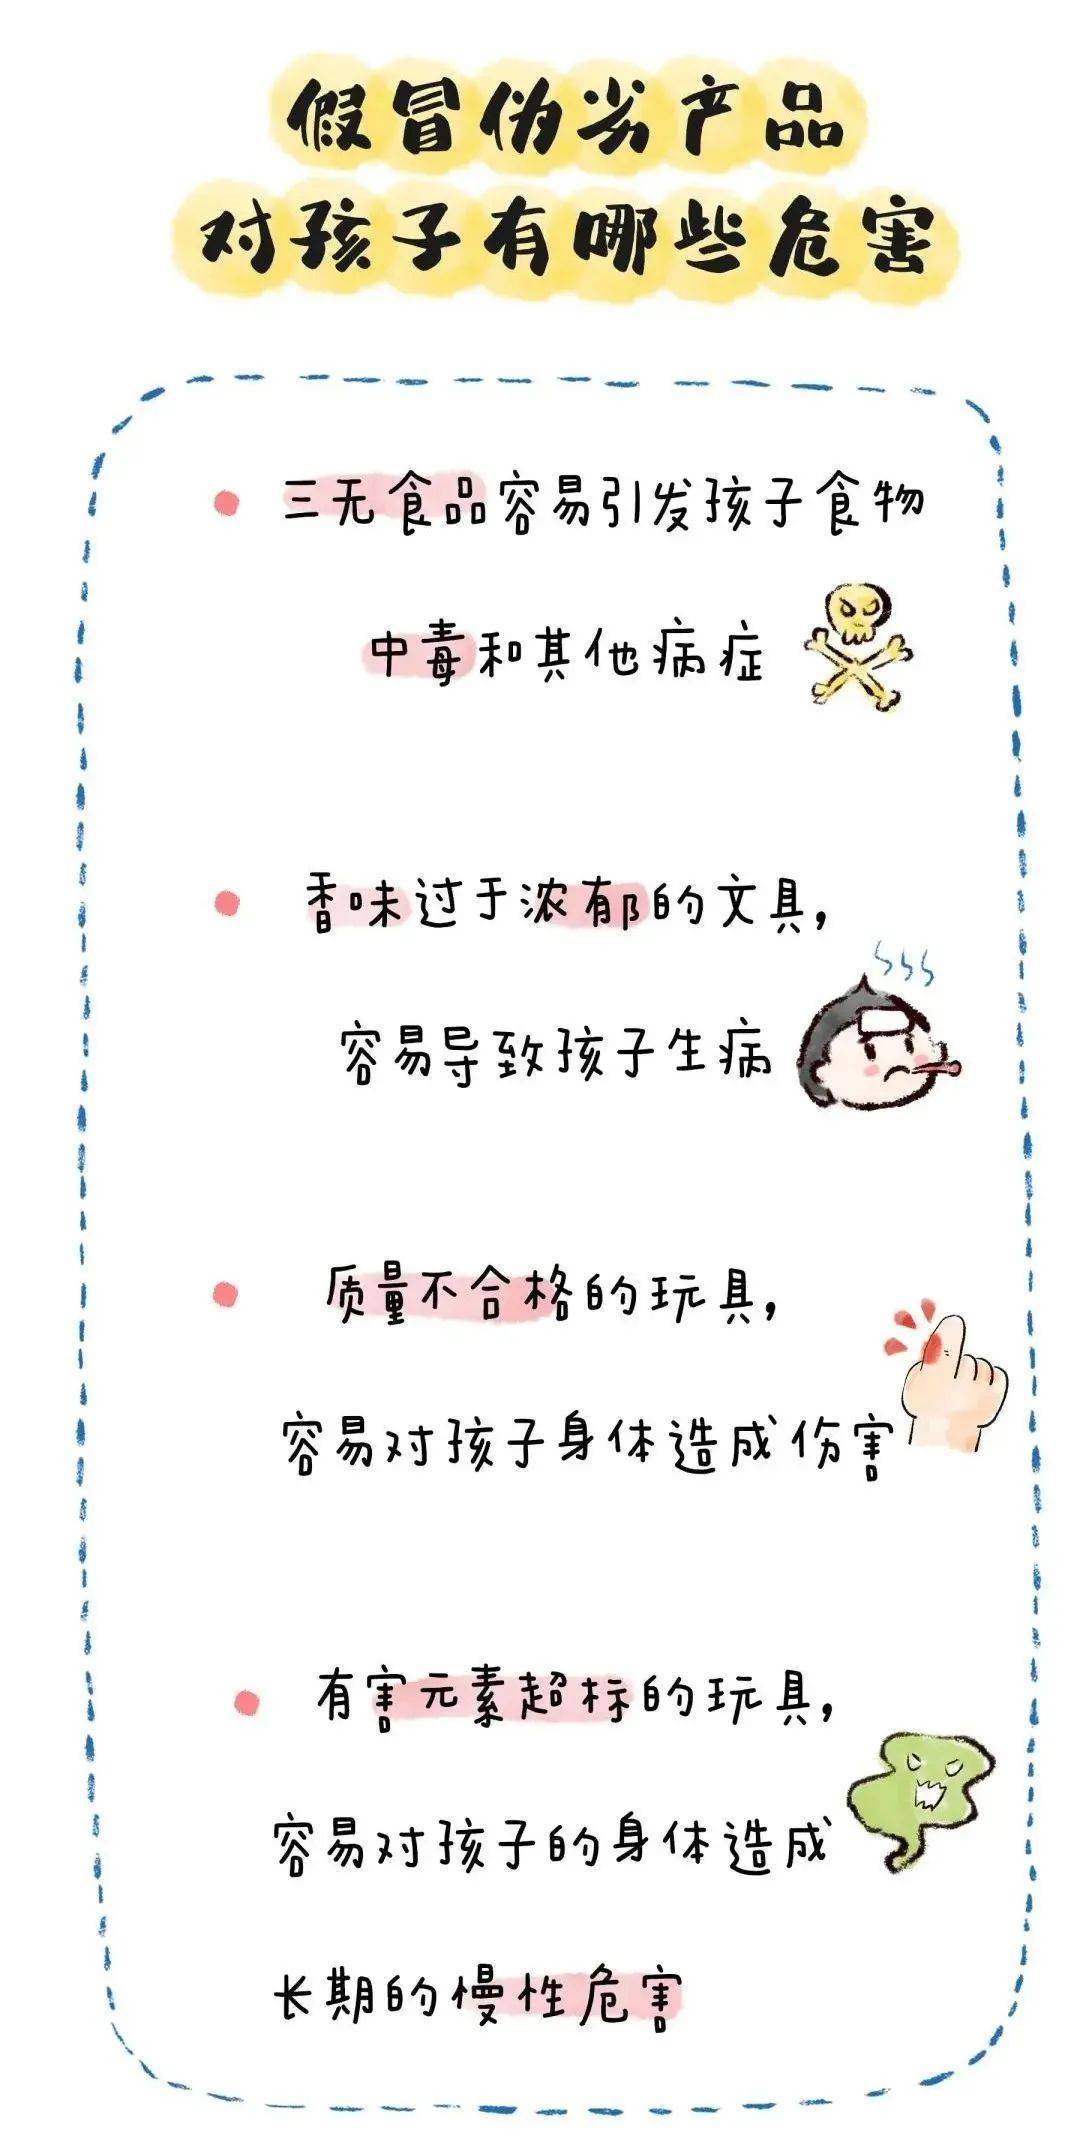 假冒伪劣产品
对孩子有哪些危害
三无食品容易引发孩子食物
中毒和其他病症
香味过于浓郁的文具，
容易导致孩子生病
质量不合格的玩具，
容易对孩子身体造成伤害
有害元素超标的玩具，
容易对孩子的身体造成
长期的慢性危害